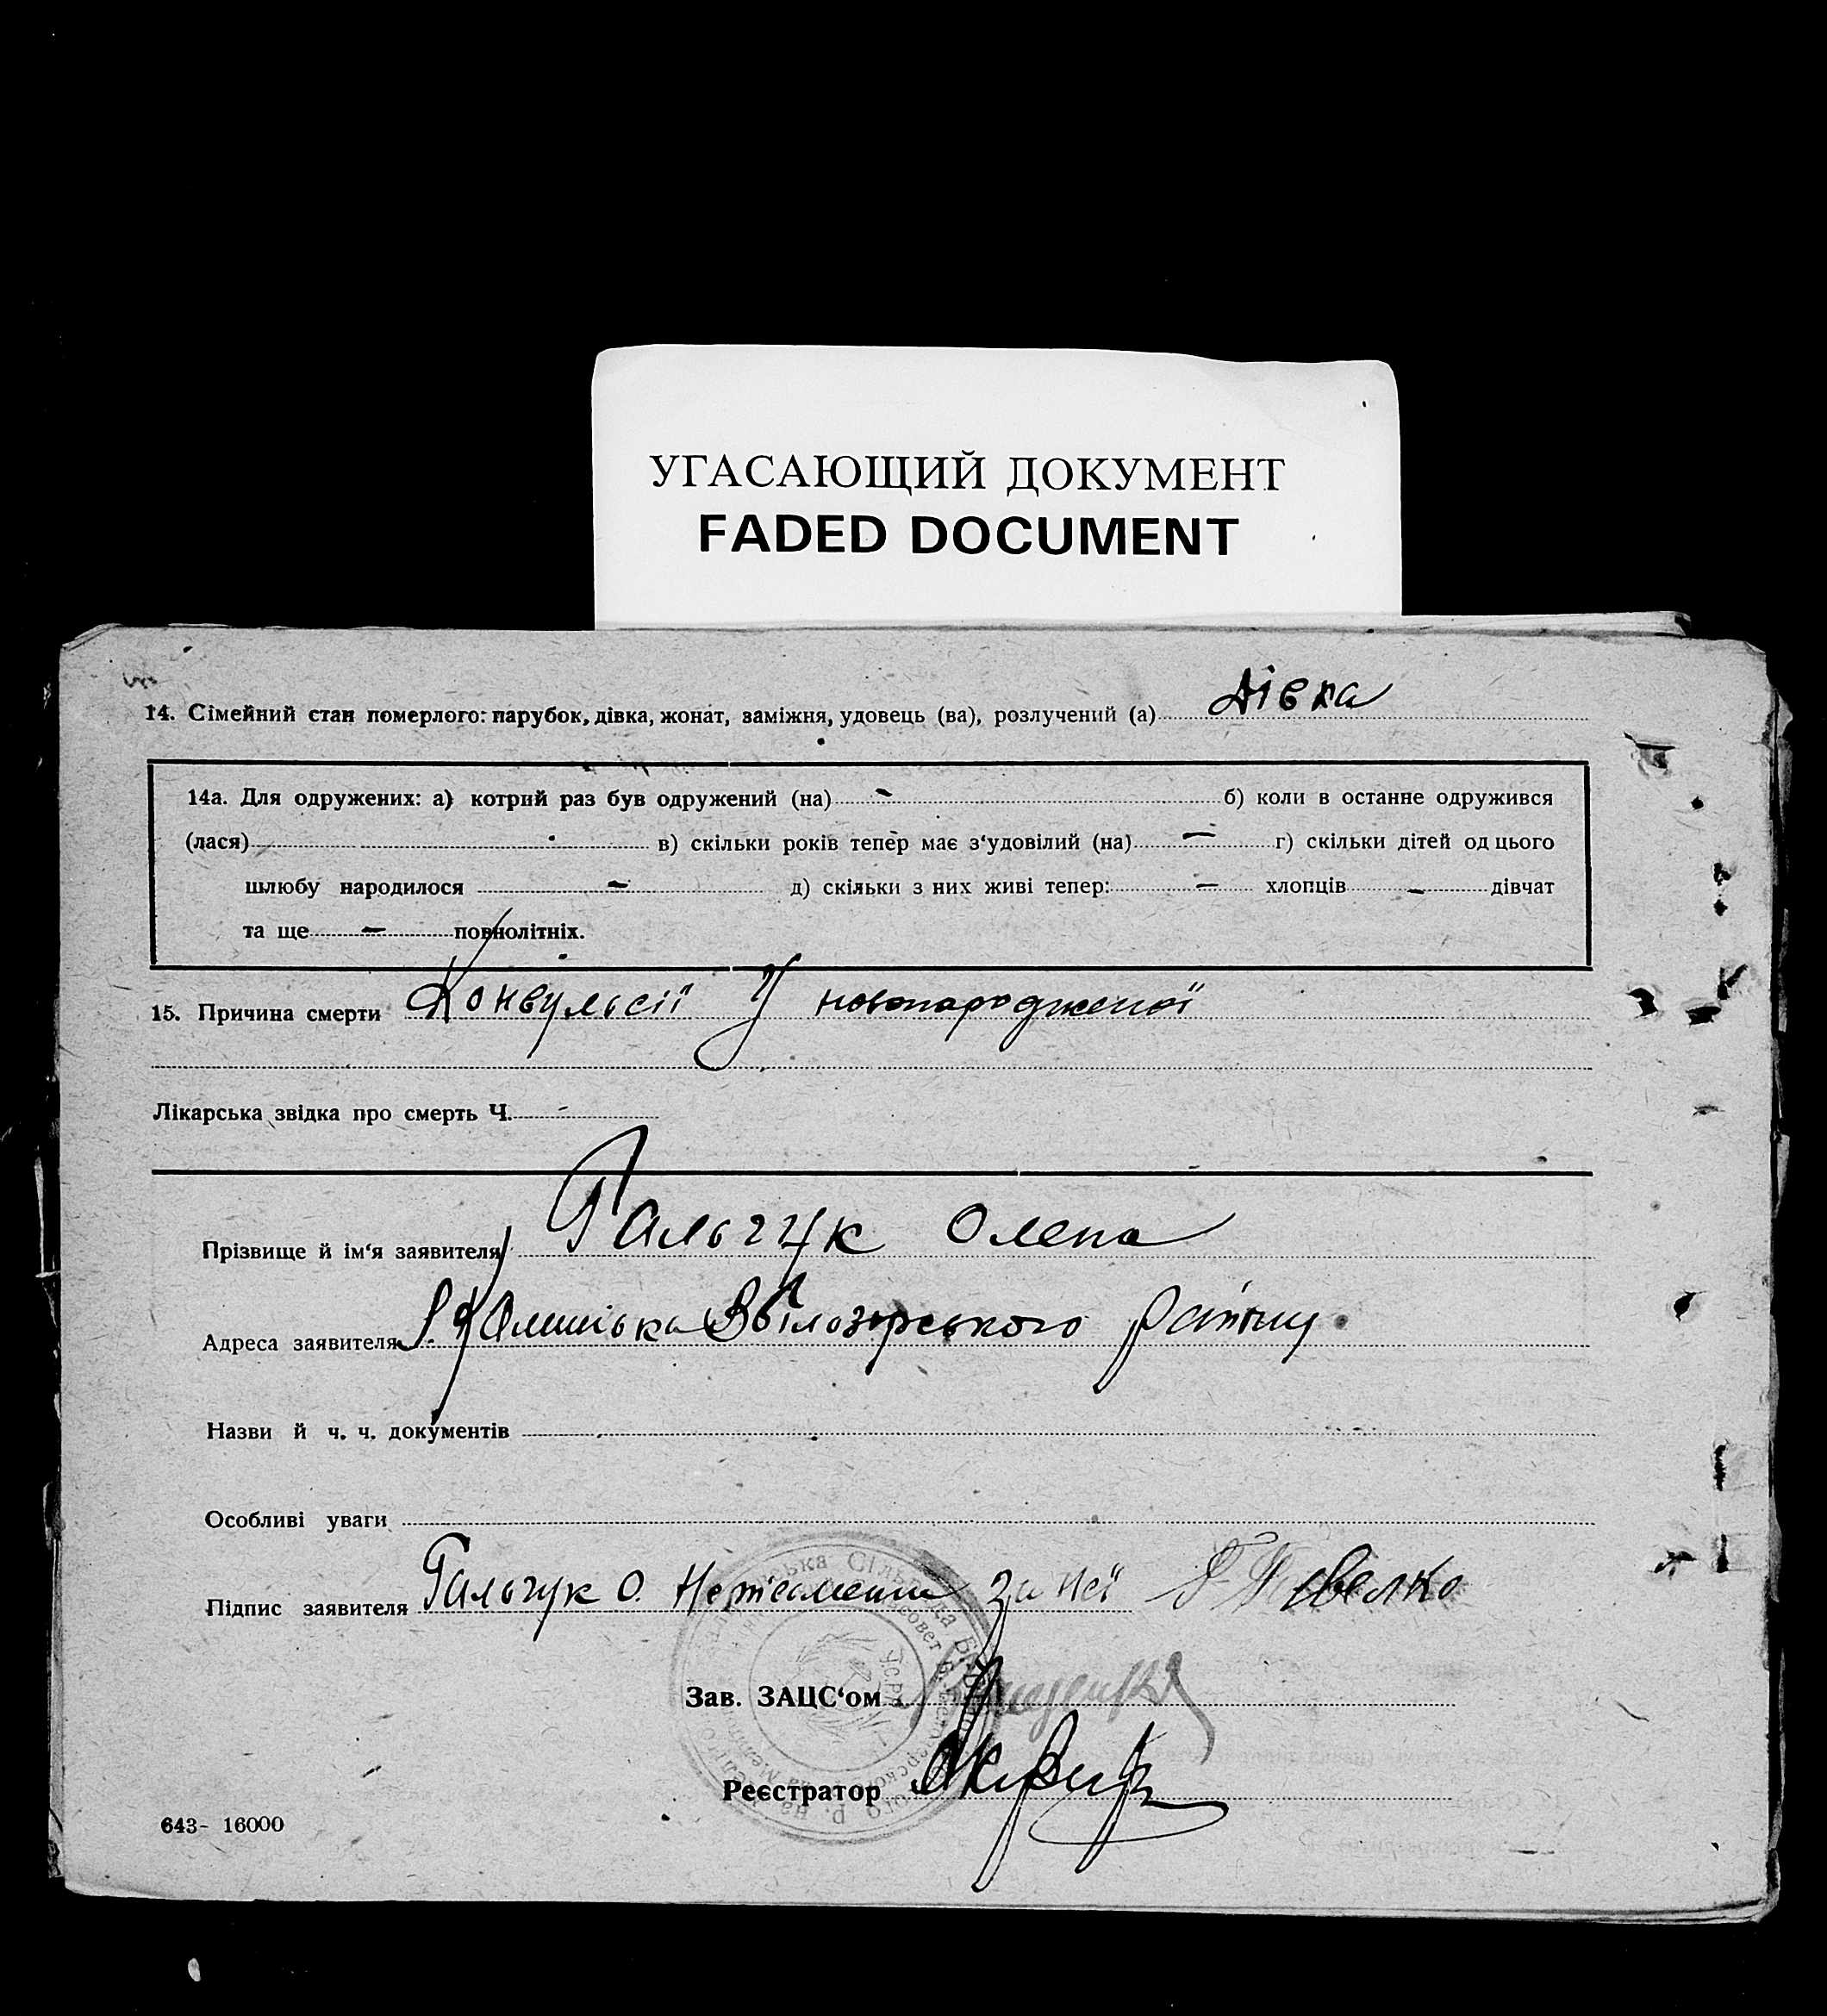 УГАСАЮЩИЙ ДОКУМЕНТ
FADED DOCUMENT
14. Сімейний стан померлого: парубок, дівка, жонат, заміжня, удовець (ва), розлучений (а) Дівка
14а. Для одружених: а) котрий раз був одружений (на) - б) коли в останнє одружився
(лася) в) скільки років тепер має з‘удовілий (на) — г) скільки дітей од цього
шлюбу народилося — д) скільки з них живі тепер: — хлопців — дівчат
та ще — повнолітніх.
15. Причина смерти Конвульсії У новонародженої
Лікарська звідка про смерть Ч. -
Прізвище й ім‘я заявителя Гальчук Олена
Адреса заявителя Білозірського району
Назви й ч. ч. документів
Особливі уваги
Підпис заявителя Гальчук О. Неписменна за неї
Зав. ЗАЦС‘ом
Реєстратор
643- 16000